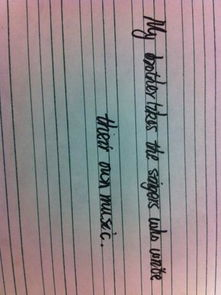 My brother likes the singers who wrote
their own music.